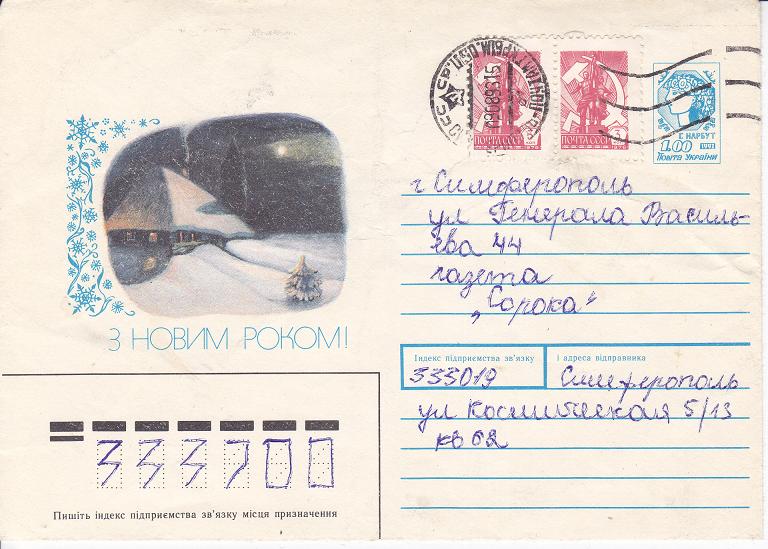 ПОЧТА СССР
ПОЧТА СССР
3
Г. НАРБУТ
1.00 1991
Пошта України
г Симферополь
ул Генерала Василь-
ева 44
газета
„Сорока"
З НОВИМ РОКОМ!
Індекс підприємства зв'язку і адреса відправника
333019 Симферополь
ул Космическая 5/13
кв 62
333700
Пишіть індекс підприємства зв'язку місця призначення